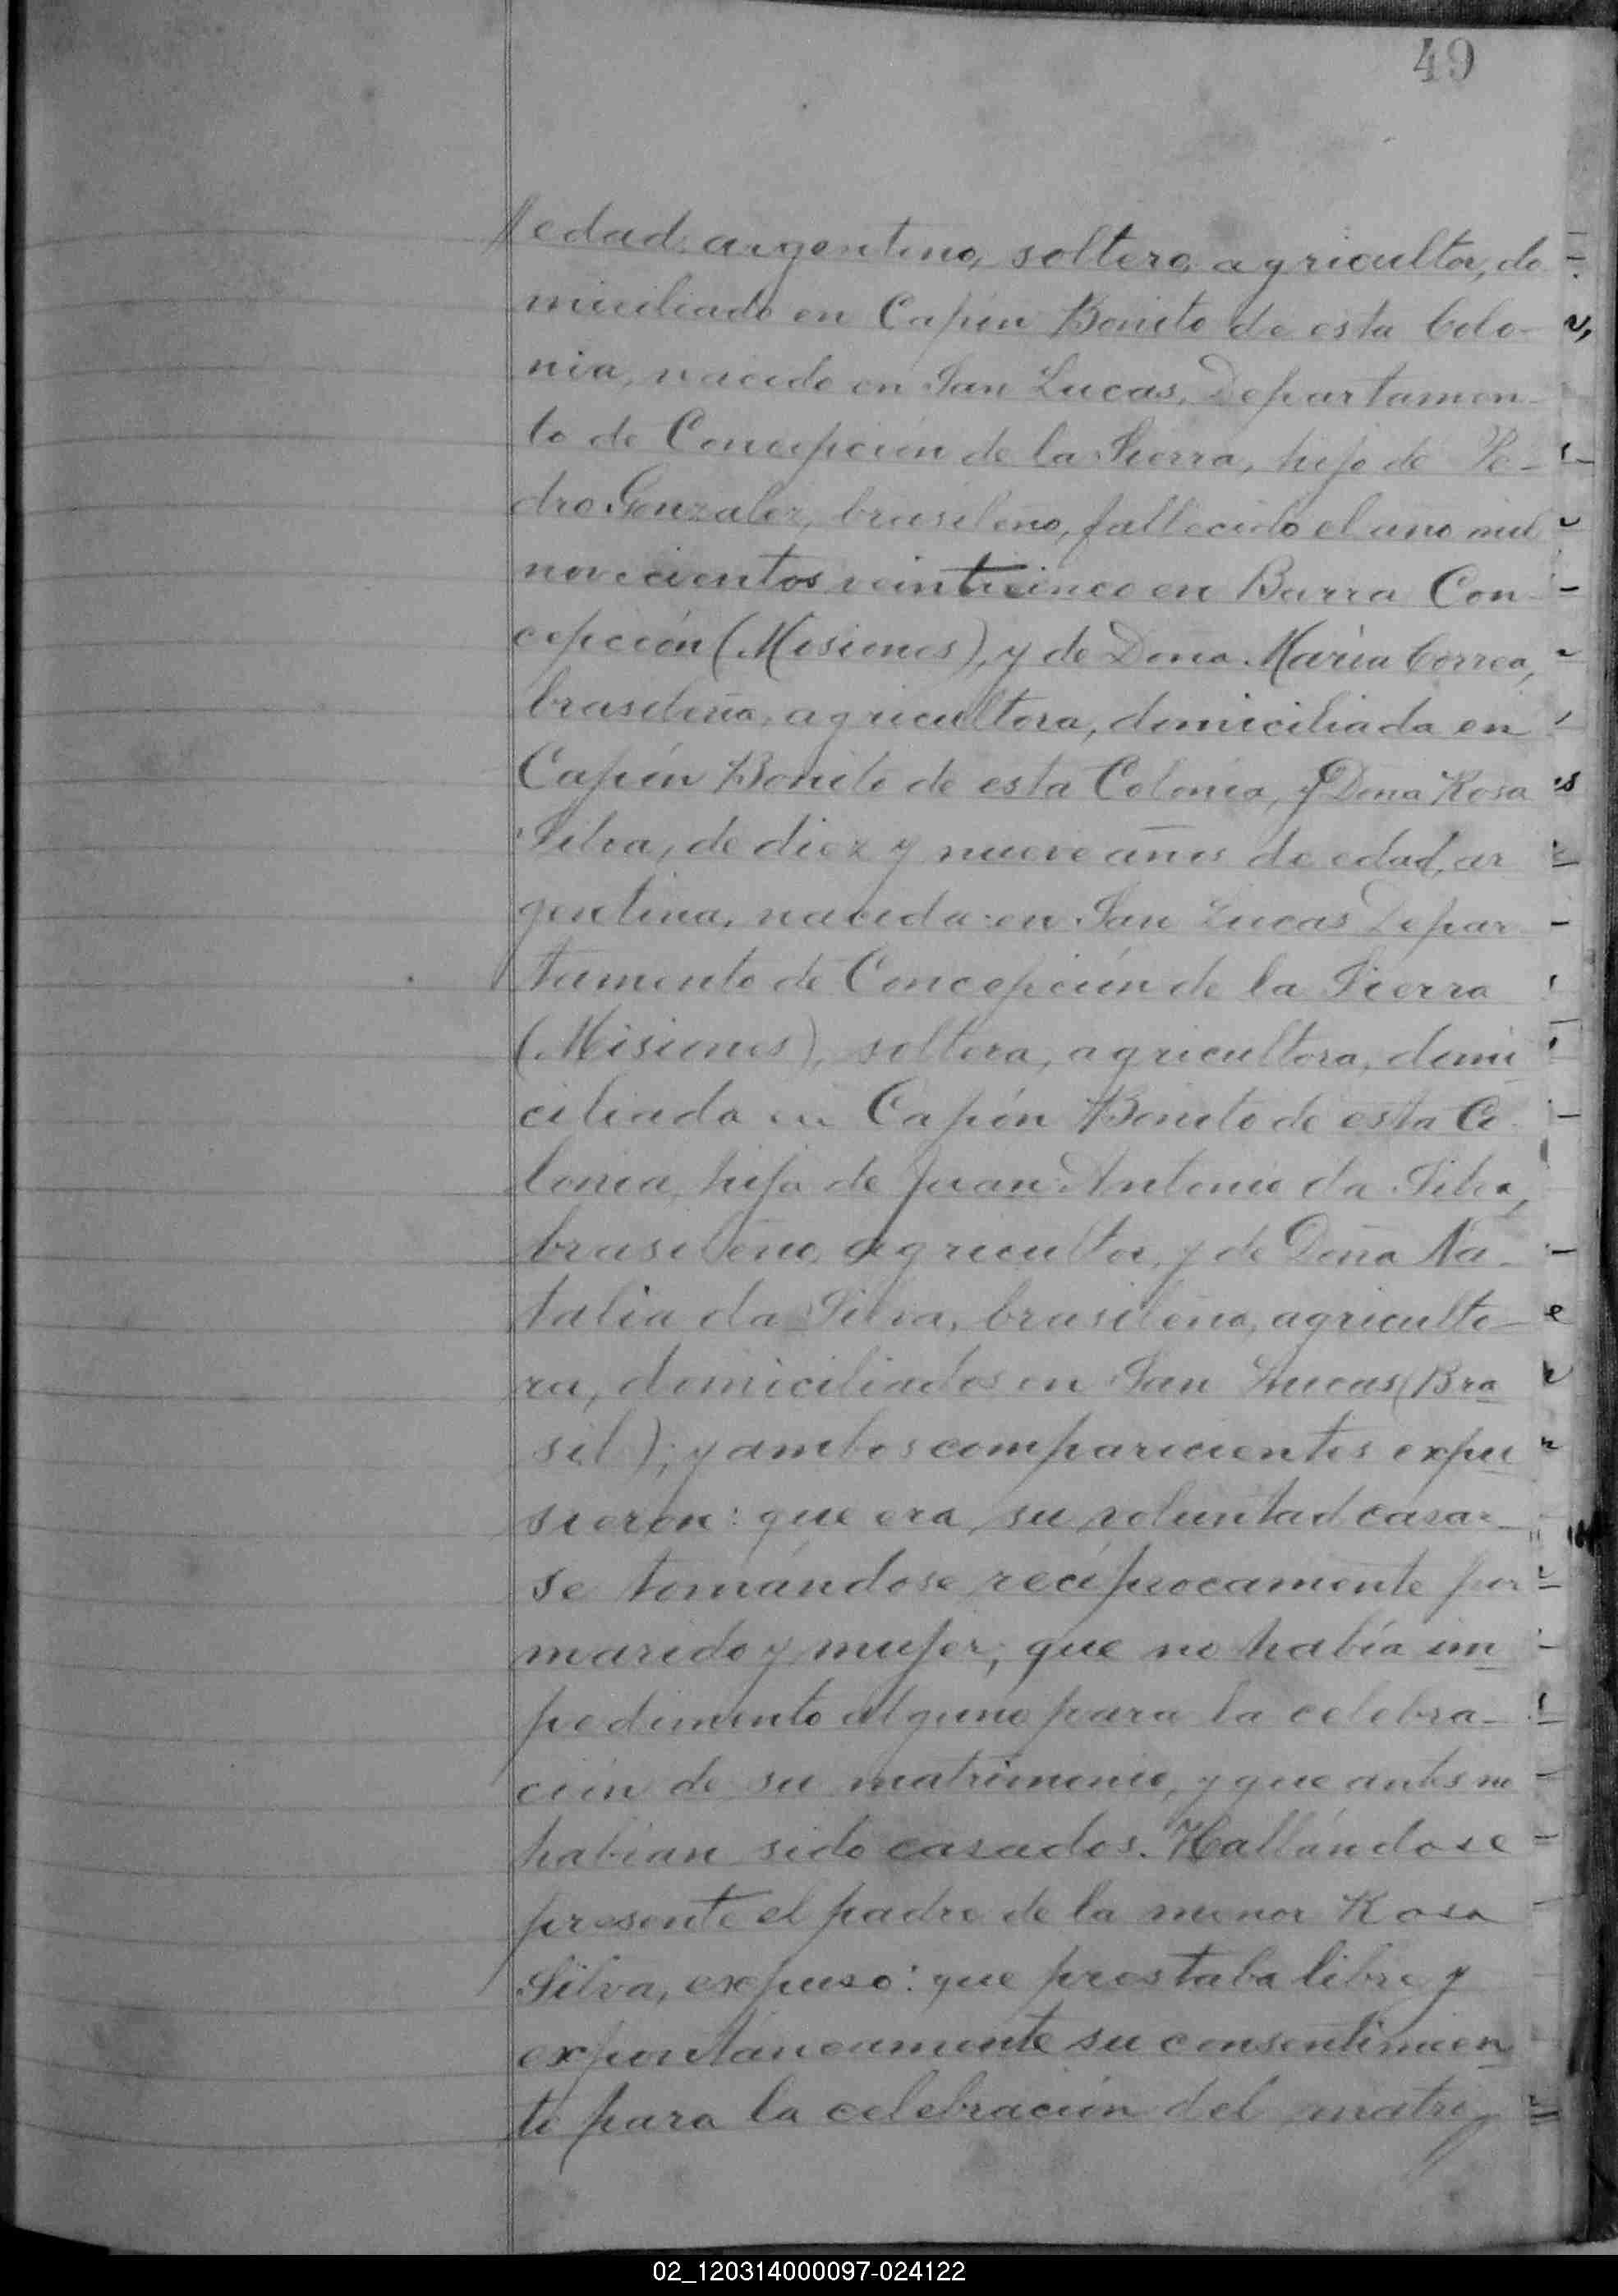 49
edad, argentino, soltero, agricultor, do
miciliado en Capón Bonito de esta Colo-
nia, nacido en San Lucas, Departamen-
to de Concepción de la Sierra, hijo de Pe-
dro Gonzalez, brasileño, fallecido el año mil
novecientos veinticinco en Barra Con-
cepción (Misiones), y de Doña María Correa,
brasileña, agricultora, domiciliada en
Capón Bonito de esta Colonia, y Doña Rosa
Silva, de diez y nueve años de edad, ar
gentina, nacida en San Lucas Depar
tamento de Concepción de la Sierra
(Misiones), soltera, agricultora, domi
ciliada en Capón Bonito de esta Co
lonia, hija de Juan Antonio da Silva,
brasileño, agricultor, y de Doña Na-
talia da Silva, brasileña, agriculto-
ra, domiciliados en San Lucas (Bra
sil); y ambos comparecientes expu
sieron: que era su voluntad casar-
se tomándose recíprocamente por
marido y mujer; que no había im
pedimento alguno para la celebra-
ción de su matrimonio, y que antes no
habían sido casados. Hallándose
presente el padre de la menor Rosa
Silva, expuso: que prestaba libre y
expontáneamente su consentimien
to para la celebración del matri
02_120314000097-024122